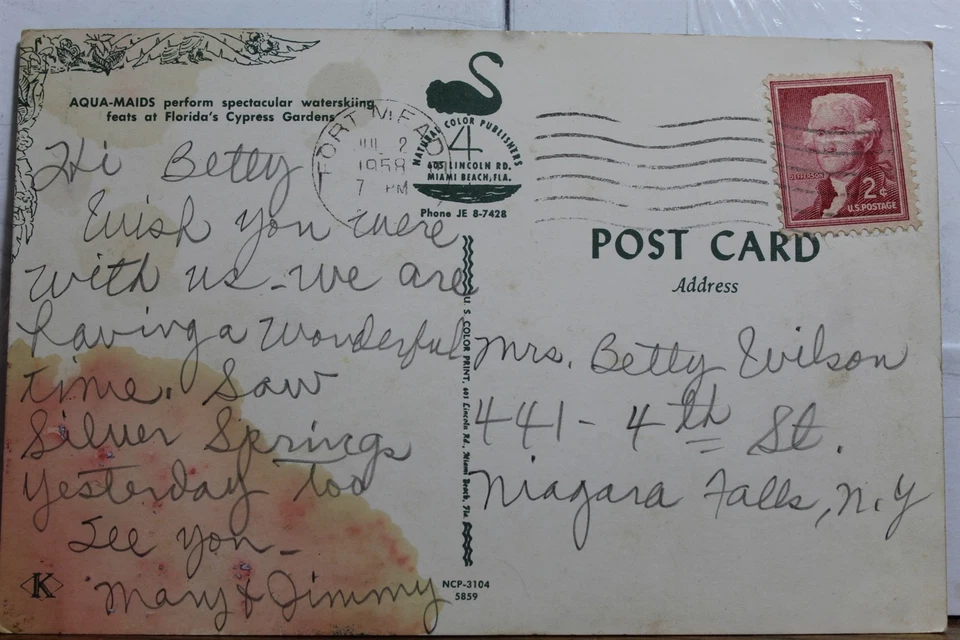 AQUA-MAIDS perform spectacular waterskiing
feats at Florida's Cypress Gardens
Hi Betty
Wish you were
with us - we are
having a wonderful
time. Saw
Silver Springs
yesterday too
See you -
Mary & Jimmy
K
FORT MEAD
JUL 2
1958
7 PM
NATURAL COLOR PUBLISHERS
4
605 LINCOLN RD.
MIAMI BEACH, FLA.
Phone JE 8-7428
U. S. COLOR PRINT, 605 Lincoln Rd., Miami Beach, Fla.
NCP-3104
5859
JEFFERSON
2¢
U.S. POSTAGE
POST CARD
Address
Mrs. Betty Wilson
441 - 4th St.
Niagara Falls, N.Y